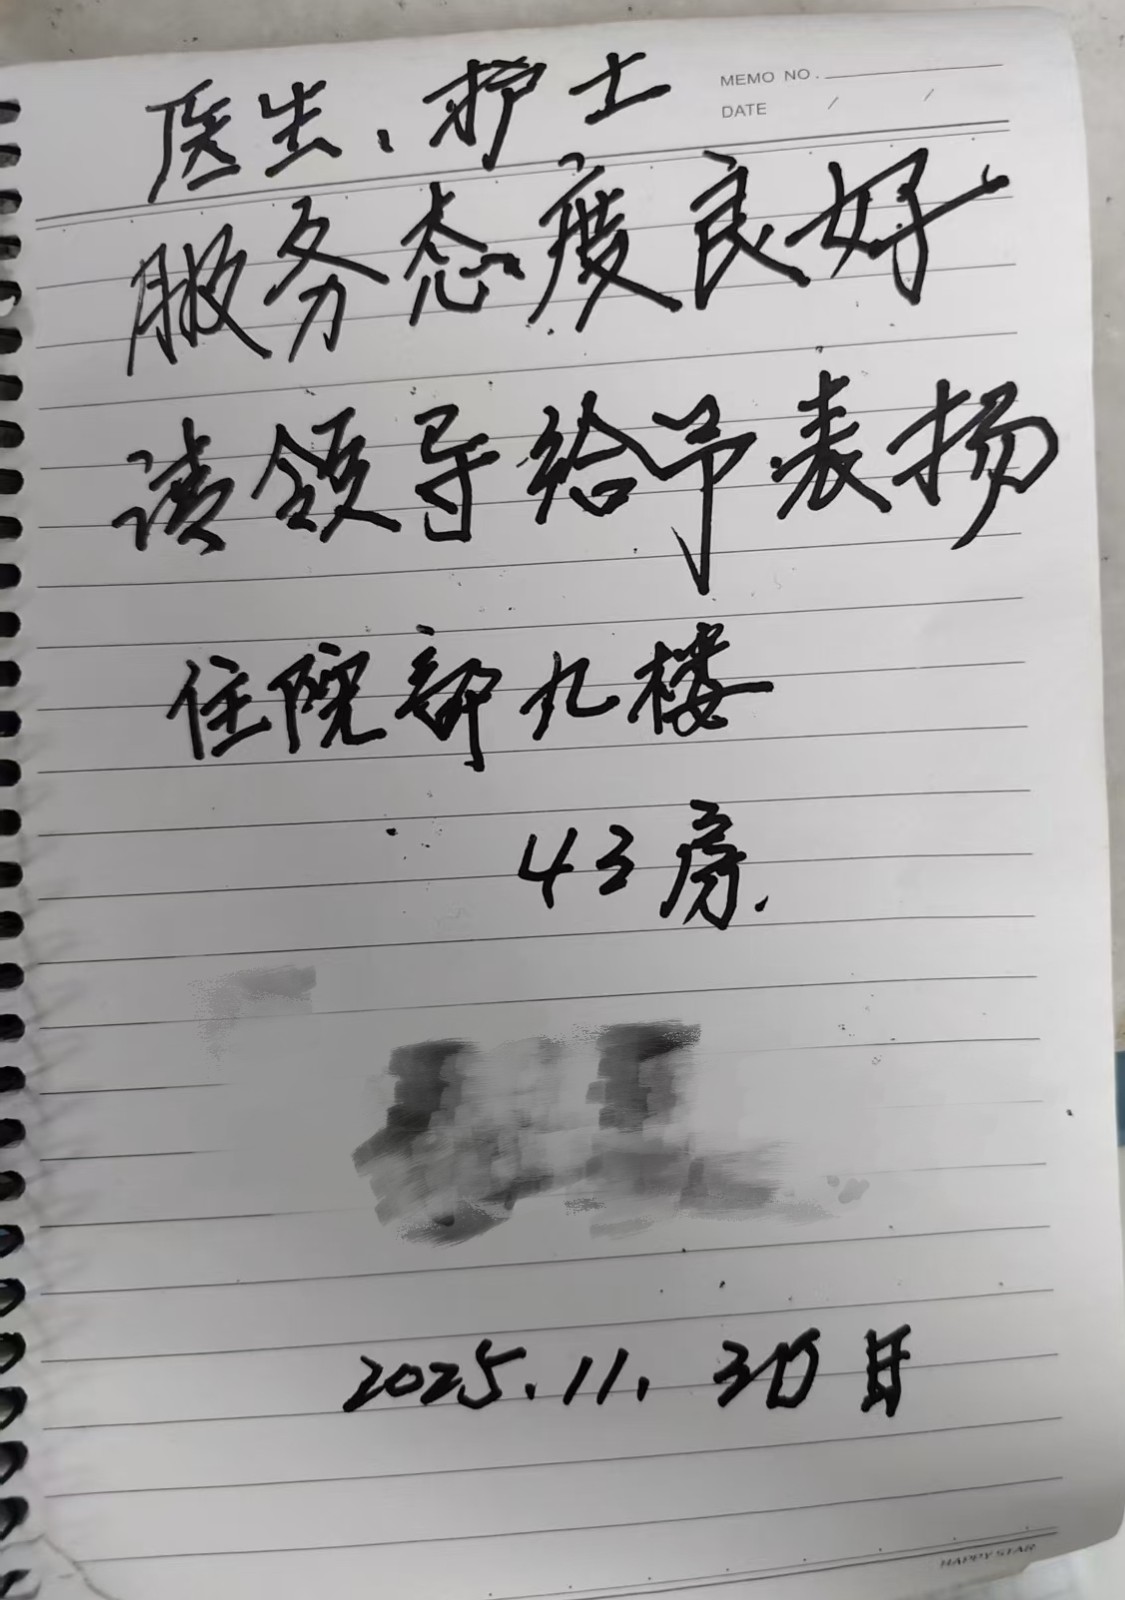 MEMO NO.
DATE / /
医生、护士
服务态度良好
请领导给予表扬
住院部九楼
43房.
2025.11.30日
HAPPY STAR